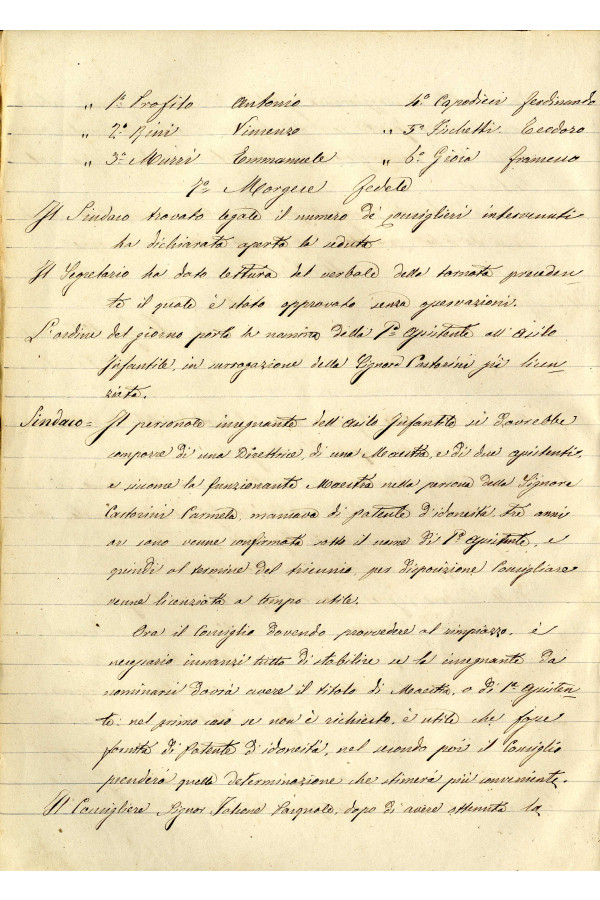 " 1° Profilo Antonio 4° Capodieci Ferdinando
" 2° Rini Vincenzo " 5° Fischetti Teodoro
" 3° Murri Emmanuele " 6° Gioia Francesco
7° Morgese Fedele
Il Sindaco trovato legale il numero de' Consiglieri intervenuti
ha dichiarata aperta la seduta
Il Segretario ha dato lettura del verbale della tornata preceden=
te il quale è stato approvato senza osservazioni.
L'ordine del giorno porta la nomina della 1ª Assistente all'Asilo
Infantile, in surrogazione della Signora Castorini già licen=
ziata.
Sindaco = Il personale insegnante dell'Asilo Infantile si dovrebbe
comporre di una Direttrice, di una Maestra, e di due assistenti,
e siccome la funzionante Maestra nella persona della Signora
Castorini Carmela, mancava di patente d'idoneità, tre anni
or sono venne confermata sotto il nome di 1ª Assistente, e
quindi al termine del triennio, per disposizione Consigliare
venne licenziata a tempo utile.
Ora il Consiglio dovendo provvedere al rimpiazzo, è
necessario innanzi tutto di stabilire se la insegnante da
nominarsi dovrà avere il titolo di Maestra, o di 1ª Assisten=
te: nel primo caso se non è richiesto, è utile che fosse
fornita di patente d'idoneità, nel secondo poi il Consiglio
prenderà quelle determinazione che stimerà più conveniente.
Il Consigliere Signor Pasquale, dopo di avere ottenuta la